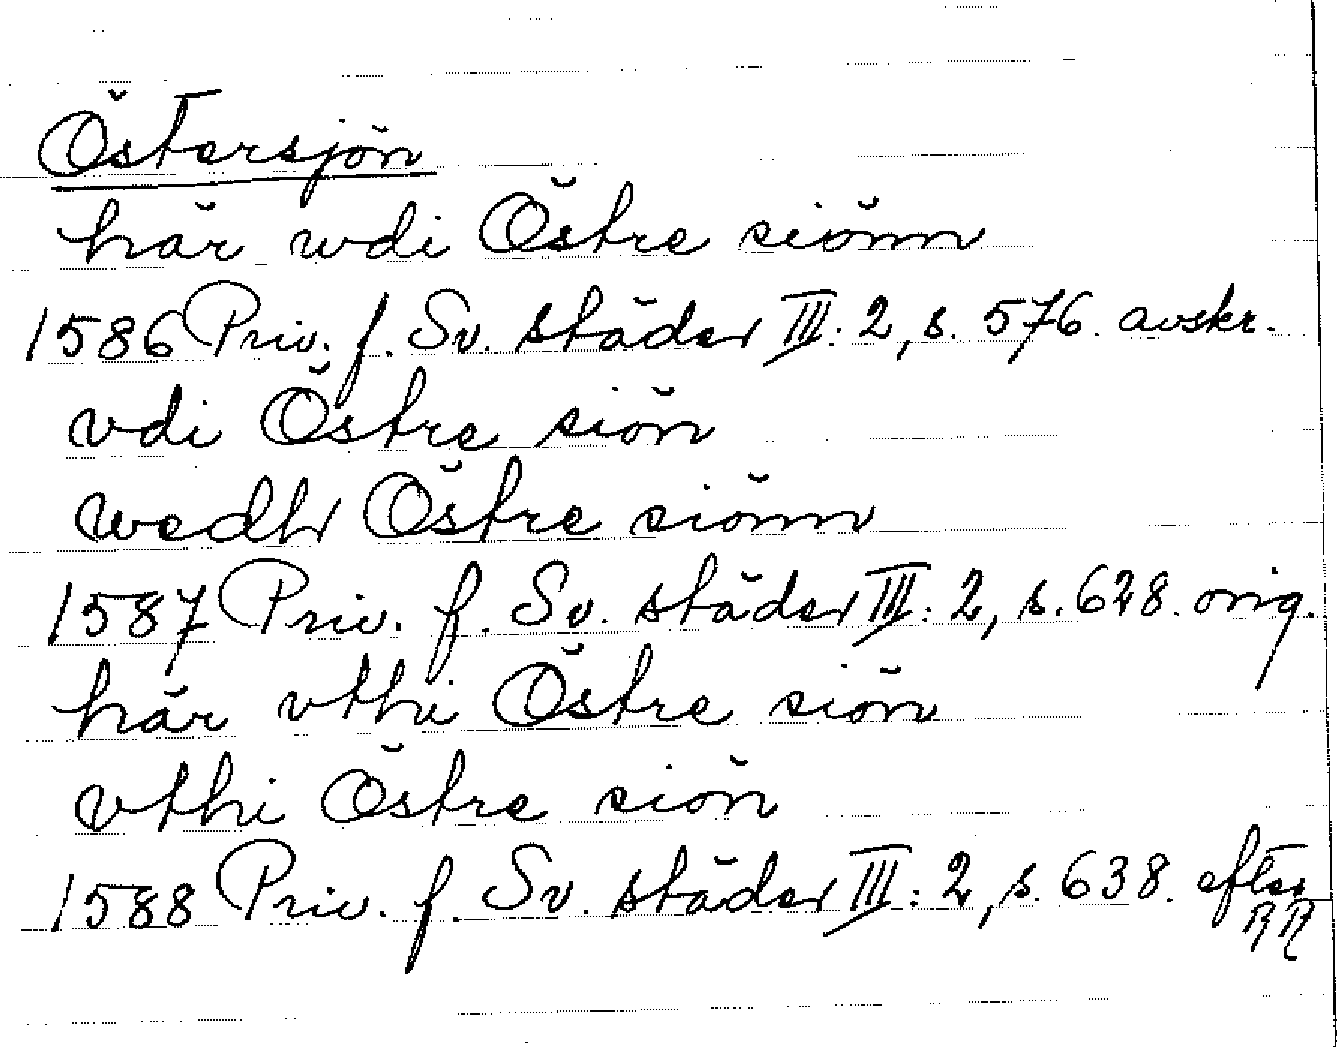 Östersjön
här wdi Östre siönn
1586 Priv. f. Sv. städer III: 2, s. 576. avskr.
vdi Östre siön
wedhr Östre siönn
1587 Priv. f. Sv. städer III: 2, s. 628. orig.
här vthi Östre siön
vthi Östre siön
1588 Priv. f. Sv. städer III: 2, s. 638. efter
RR